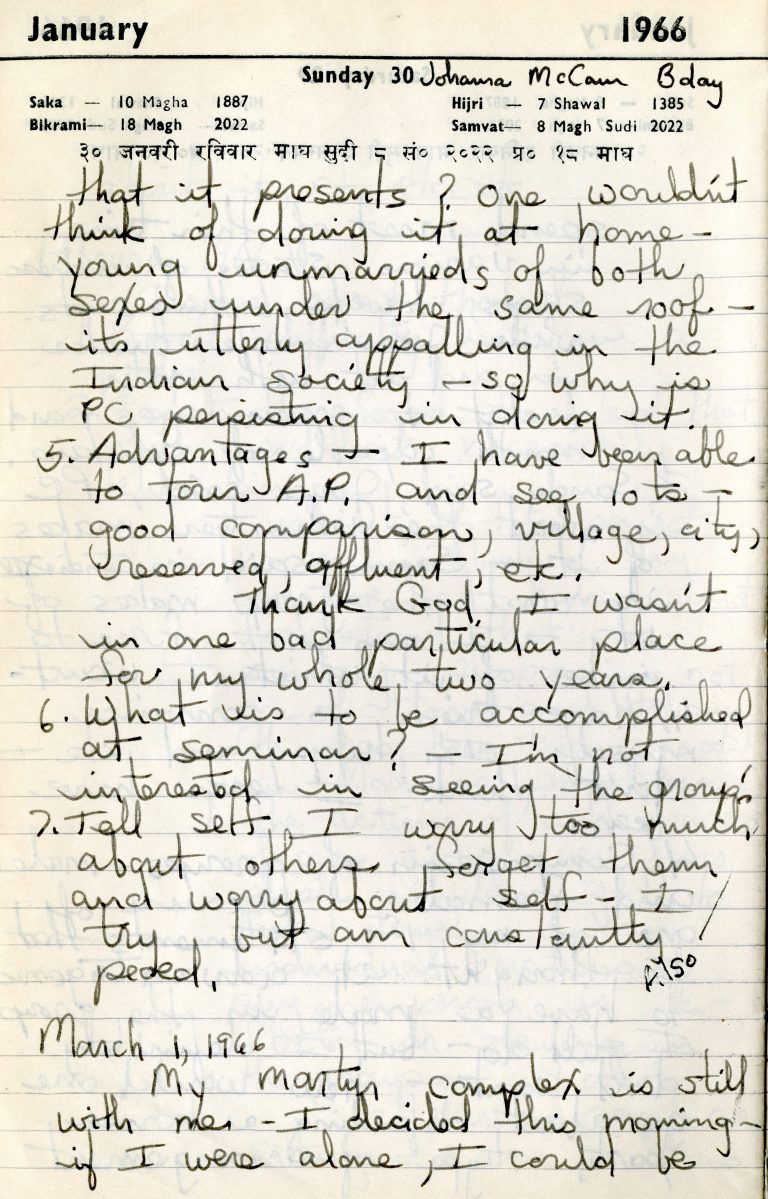 January 1966
Sunday 30 Johanna McCann Bday
Saka — 10 Magha 1887 Hijri — 7 Shawal 1385
Bikrami— 18 Magh 2022 Samvat— 8 Magh Sudi 2022
३० जनवरी रविवार माघ सुदी ८ सं० २०२२ प्र० १८ माघ
that it presents? One wouldn't
think of doing it at home –
young unmarrieds of both
sexes under the same roof –
its utterly appalling in the
Indian Society – so why is
PC persisting in doing it.
5. Advantages – I have been able
to tour A.P. and see lots –
good comparison, village, city,
reserved, affluent, etc.
Thank God I wasn't
in one bad particular place
for my whole two years.
6. What is to be accomplished
at seminar? – I'm not
interested in seeing the group.
7. Tell self I worry too much
about others forget them
and worry about self – I
try but am constantly
peded.
March 1, 1966
My martyr complex is still
with me – I decided this morning –
if I were alone, I could be